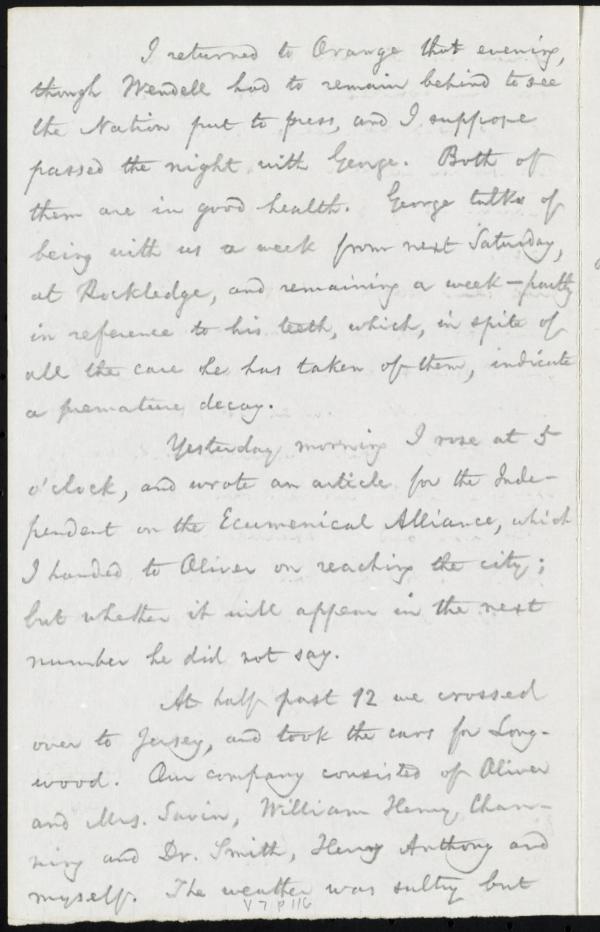 I returned to Orange that evening,
though Wendell had to remain behind to see
the Nation put to press, and I suppose
passed the night with George. Both of
them are in good health. George talks of
being with us a week from next Saturday,
at Rockledge, and remaining a week — partly
in reference to his teeth, which, in spite of
all the care he has taken of them, indicate
a premature decay.
Yesterday morning I rose at 5
o'clock, and wrote an article for the Inde-
pendent on the Ecumenical Alliance, which
I handed to Oliver on reaching the city;
but whether it will appear in the next
number he did not say.
At half past 12 we crossed
over to Jersey, and took the cars for Long-
wood. Our company consisted of Oliver
and Mrs. Savin, William Henry Chan-
ning and Dr. Smith, Henry Anthony and
myself. The weather was sultry but
V 7 P 116